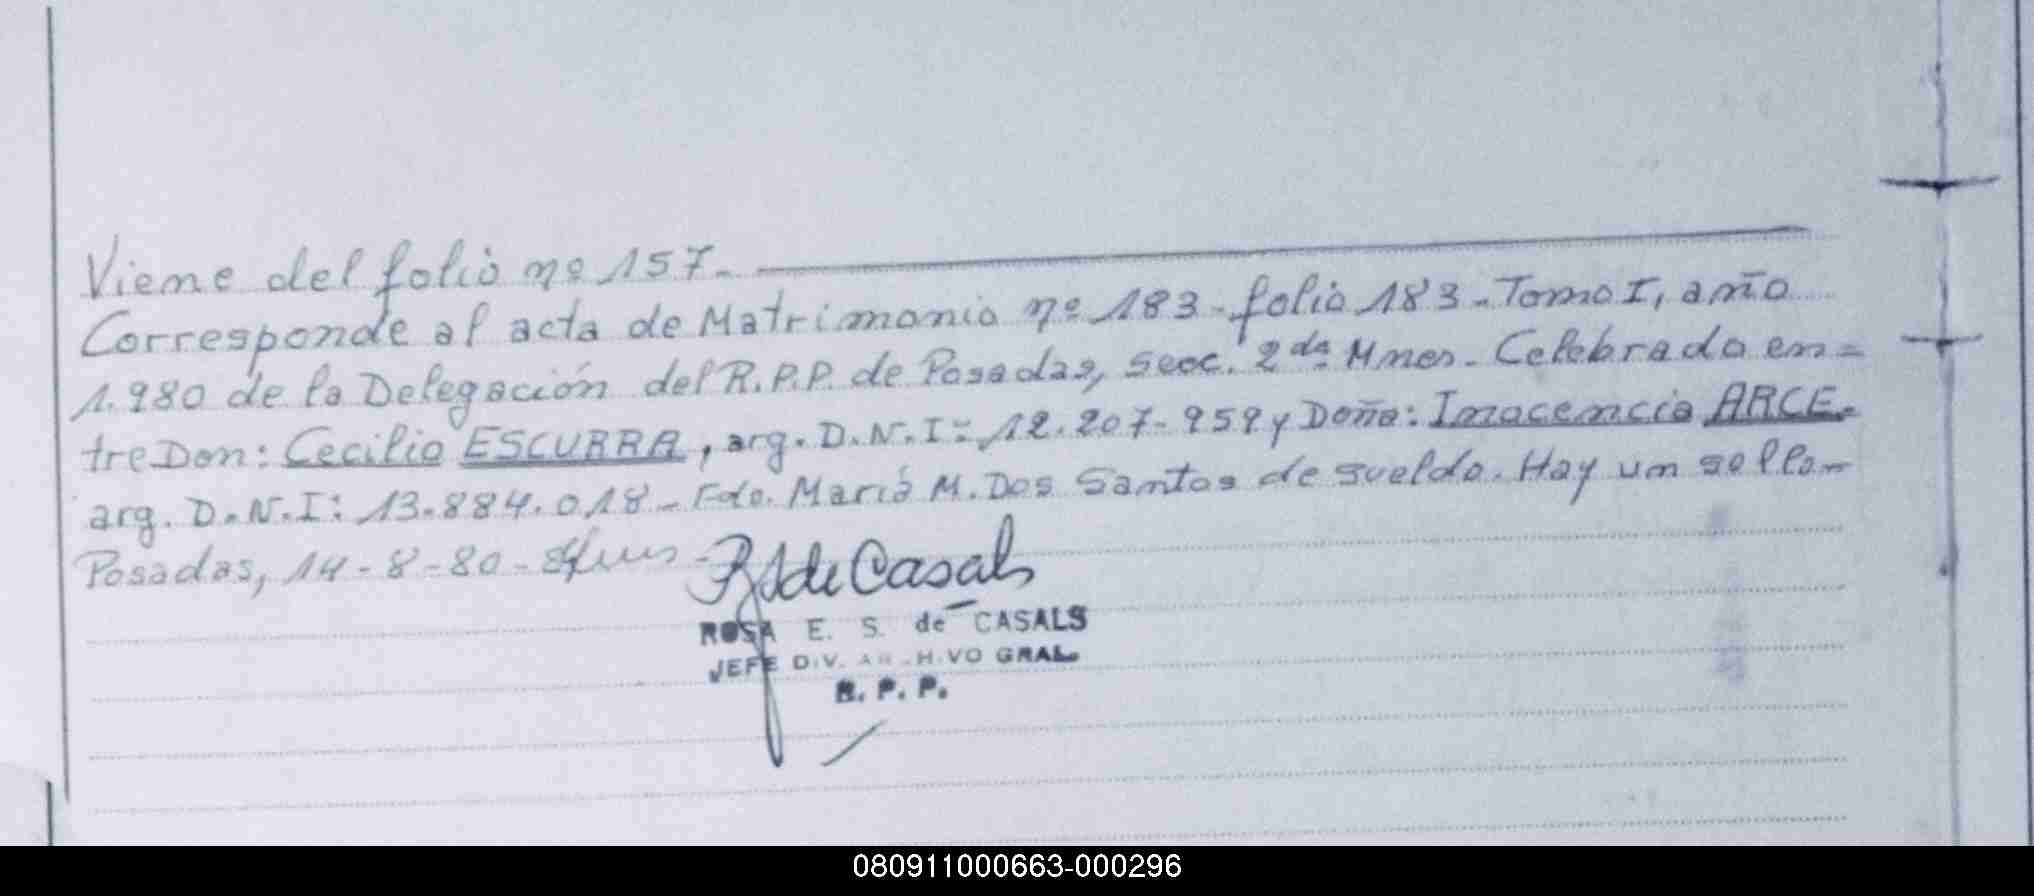 Viene del folio nº 157.-
Corresponde al acta de Matrimonio nº 183-folio 183-Tomo I, año
1.980 de la Delegación del R.P.P. de Posadas, secc. 2da Mnes.- Celebrado en=
tre Don: Cecilio ESCURRA, arg. D.N.I: 12.207-959 y Doña: Inocencia ARCE.
arg. D.N.I: 13.884.018- Fdo. María M. Dos Santos de sueldo. Hay un sello-
Posadas, 14-8-80-
de Casals
ROSA E. S. de CASALS
JEFE DIV. ARCHIVO GRAL.
R. P. P.
080911000663-000296